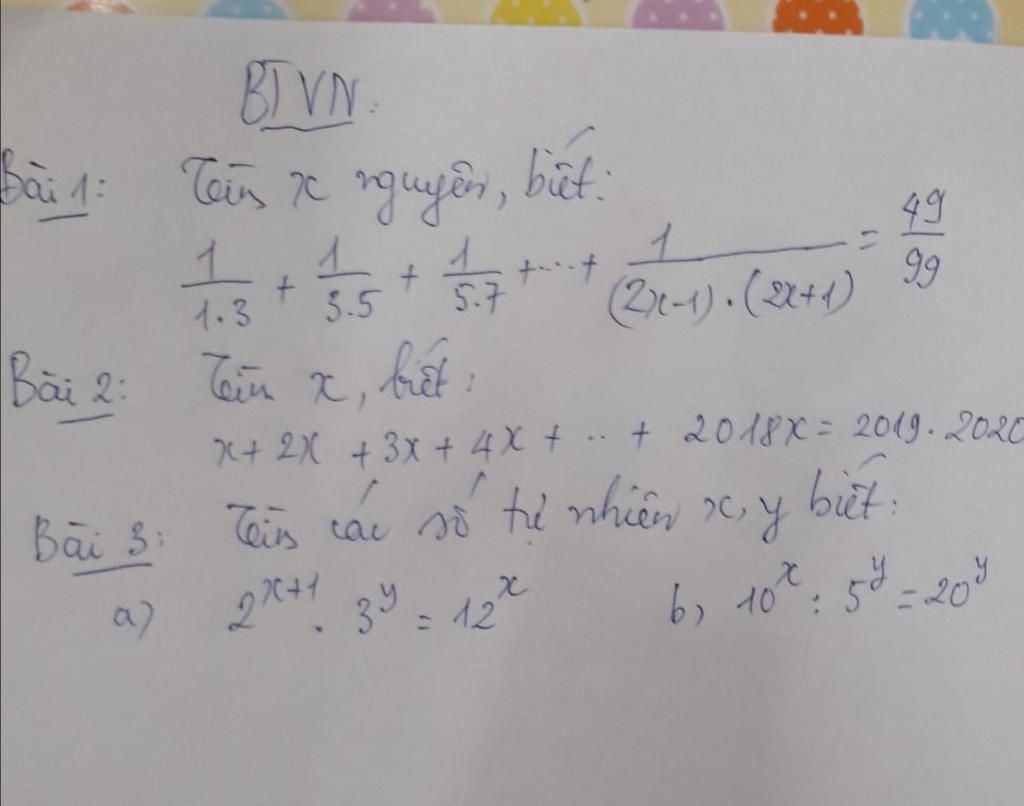 BTVN.
Bài 1: Tìm x nguyên, biết:
1/1.3 + 1/3.5 + 1/5.7 + ... + 1/(2x-1).(2x+1) = 49/99
Bài 2: Tìm x, biết:
x + 2x + 3x + 4x + .. + 2018x = 2019.2020
Bài 3: Tìm các số tự nhiên x, y biết:
a) 2^(x+1) . 3^y = 12^x b, 10^x : 5^y = 20^y